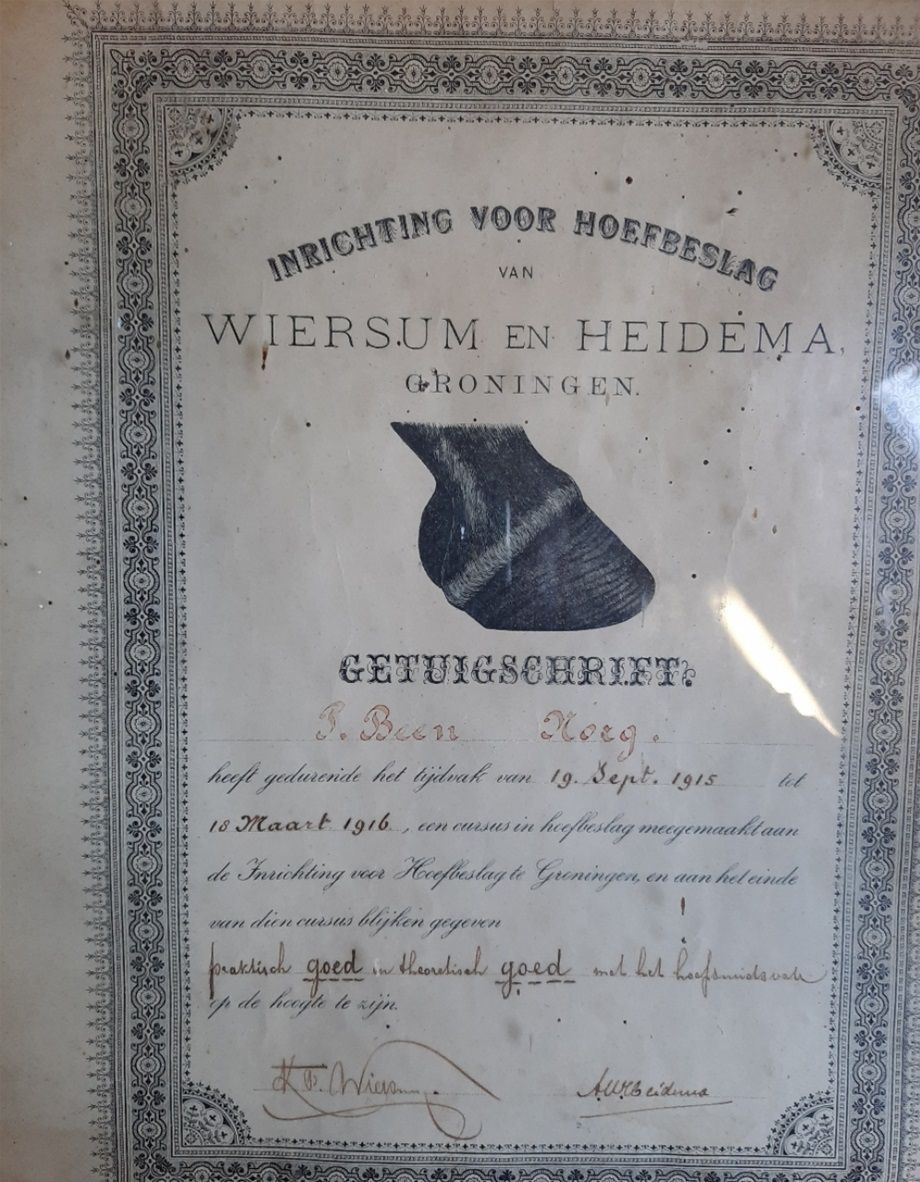 INRICHTING VOOR HOEFBESLAG
VAN
WIERSUM EN HEIDEMA,
GRONINGEN.
GETUIGSCHRIFT.
Been Norg.
heeft gedurende het tijdvak van 19. Sept. 1915 tot
18 Maart 1916, een cursus in hoefbeslag meegemaakt aan
de Inrichting voor Hoefbeslag te Groningen, en aan het einde
van dien cursus blijken gegeven
praktisch goed en theoretisch goed met het hoefsmidsvak
op de hoogte te zijn.
Wiersum Heidema